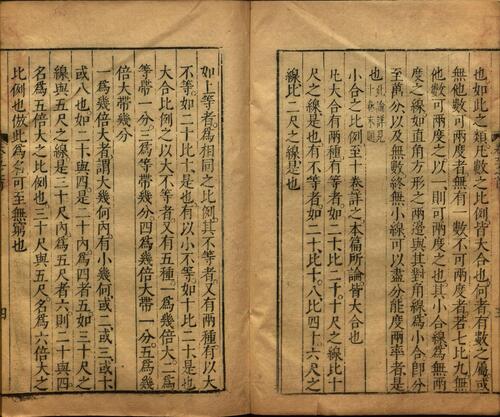 也如此之類凡數之比例皆大合也何者有數之屬或
無他數可兩度者無有一數不可兩度者若七比九無
他數可兩度之以一則可兩度之也其小合線爲無兩
度之線如直角方形之兩邊與其對角線爲小合卽分
至萬分以及無數終無小線可以盡分能度兩率者是
也此論詳見十卷末題
小合之比例至十卷詳之本篇所論皆大合也
凡大合有兩種有等者如二十比二十十尺之線比十
尺之線是也有不等者如二十比十八比四十六尺之
線比二尺之線是也
如上等者爲相同之比例其不等者又有兩種有以大
不等如二十比十是也有以小不等如十比二十是也
大合比例之以大不等者又有五種一爲幾倍大二爲
等帶一分三爲等帶幾分四爲幾倍大帶一分五爲幾
倍大帶幾分
一爲幾倍大者謂大幾何內有小幾何或二或三或十
或八也如二十與四是二十內爲四者五如三十尺之
線與五尺之線是三十尺內爲五尺者六則二十與四
名爲五倍大之比例也三十尺與五尺名爲六倍大之
比例也倣此爲名可至無窮也
四